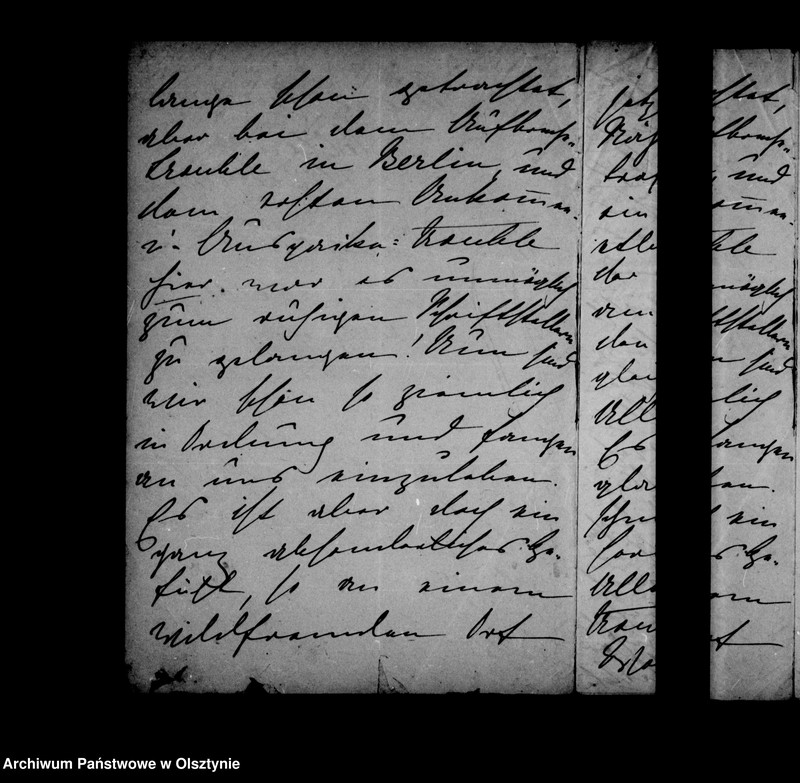 lange schon getrachtet,
aber bei dem Aufbruchs-
trouble in Berlin, und
dem ersten Ankommen-
u. Auspacke-trouble
hier war es unmöglich
zum ruhigen Schriftstellern
zu gelangen! Nun sind
wir schon so ziemlich
in Ordnung und fangen
an uns einzuleben.
Es ist aber doch ein
ganz absonderliches Ge-
fühl, so an einem
wildfremden Ort
Archiwum Państwowe w Olsztynie